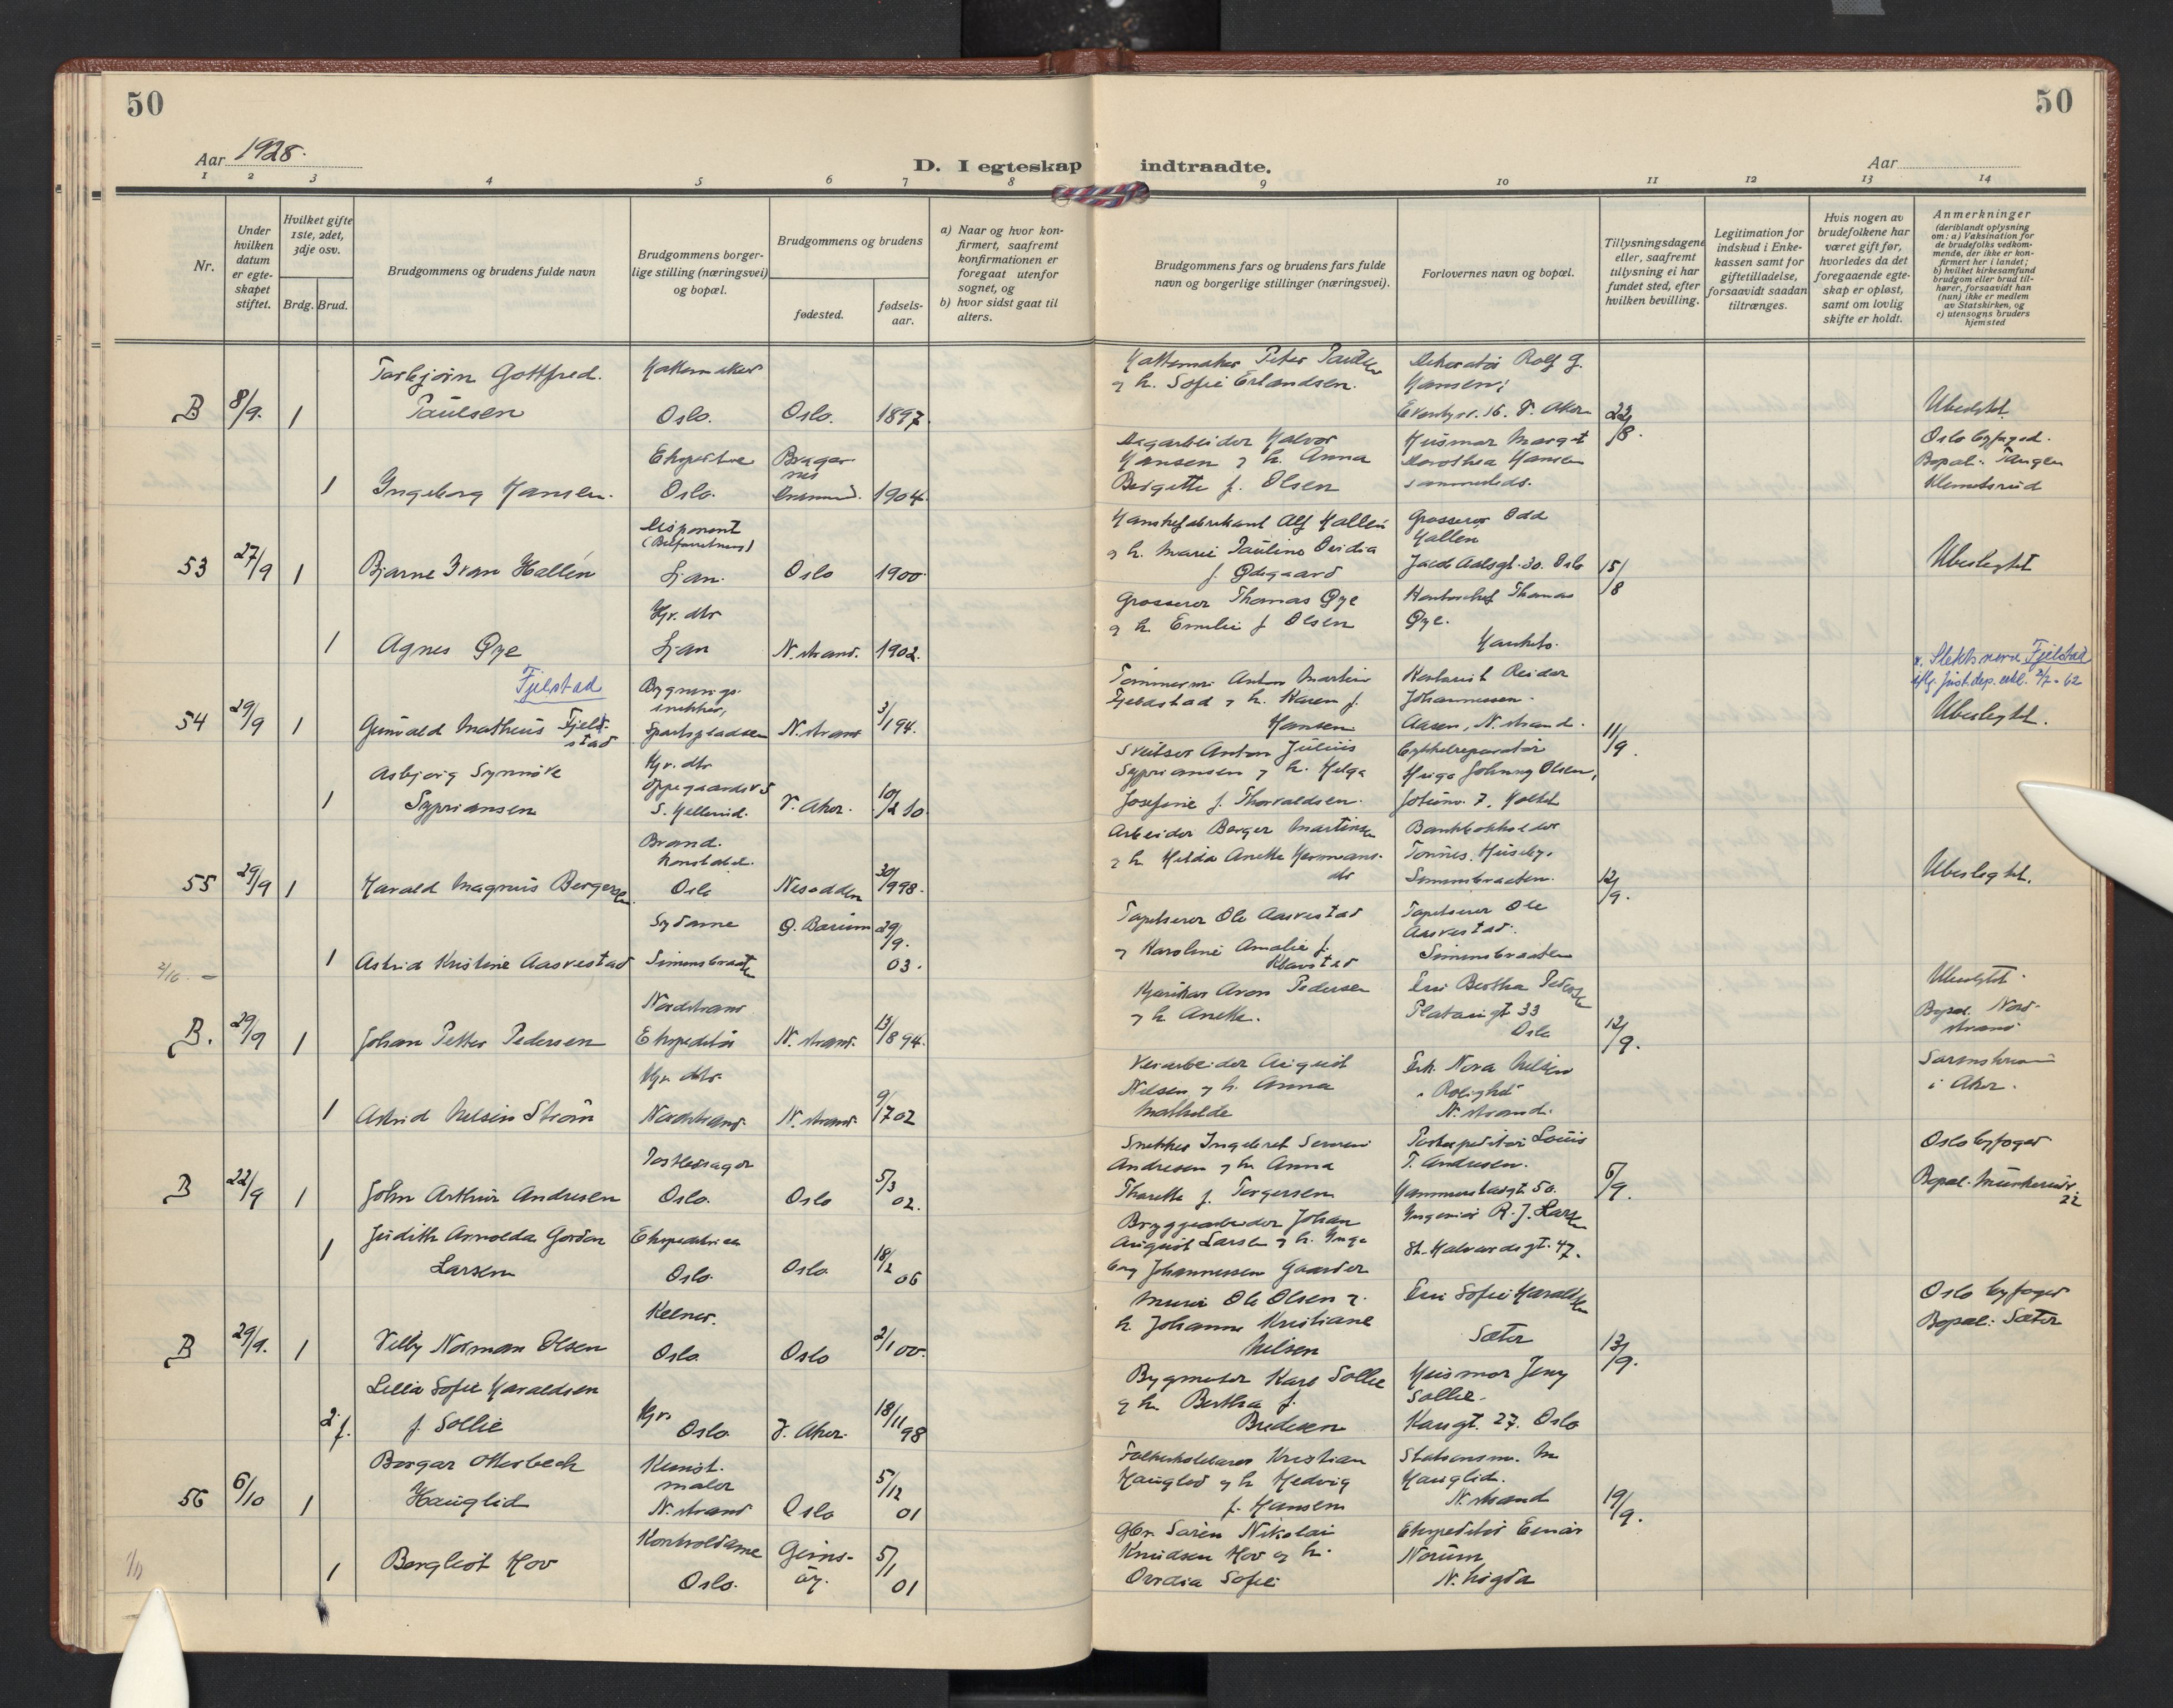 50
50
Aar 1928.
D. I egteskap indtraadte.
Aar
1 2 3 4 5 6 7 8 9 10 11 12 13 14
Nr.
Under hvilken datum er egteskapet stiftet.
Hvilket gifte 1ste, 2det, 3dje osv.
Brdg. Brud.
Brudgommens og brudens fulde navn
Brudgommens borgerlige stilling (næringsvei) og bopæl.
Brudgommens og brudens
fødested.
fødselsaar.
a) Naar og hvor konfirmert, saafremt konfirmationen er foregaat utenfor sognet, og
b) hvor sidst gaat til alters.
Brudgommens fars og brudens fars fulde navn og borgerlige stillinger (næringsvei).
Forlovernes navn og bopæl.
Tillysningsdagene eller, saafremt tillysning ei har fundet sted, efter hvilken bevilling.
Legitimation for indskud i Enkekassen samt for giftetilladelse, forsaavidt saadan tiltrænges.
Hvis nogen av brudefolkene har været gift før, hvorledes da det foregaaende egteskap er opløst, samt om lovlig skifte er holdt.
Anmerkninger (deriblandt oplysning om: a) Vaksination for de brudefolks vedkommende, der ikke er konfirmert her i landet; b) hvilket kirkesamfund brudgom eller brud tilhører, forsaavidt han (hun) ikke er medlem av Statskirken, og c) utensogns bruders hjemsted
B 8/9. 1 Torbjørn Gottfred. Paulsen Hattemaker Oslo. Oslo. 1897.
Hattemaker Peter Paulsen og h. Sofie Erlandsen. Dekoratør Rolf G. Hansen, Eventyrv. 16. V. Aker 22/8. Ubeslgtet.
1 Ingeborg Hansen. Ekspeditrice Oslo. Bragernes Drammen. 1904.
Dagarbeider Halvor Hansen og h. Anna Bergitte f. Olsen Husmor Margit Dorothea Hansen sammesteds. Oslo byfoged. Bopæl: Tangen Klemetsrud
53 27/9 1 Bjarne Ivan Hallén Disponent Ljan. Oslo 1900.
Hanskefabrikant Alf Hallén og h. Marie Pauline Ovidia f. Ødegaard Grosserer Odd Hallen Jacob Aalsgt. 30. Oslo 15/8 Ubeslegtet
1 Agnes Øye Hjv. dtr Ljan N. strand. 1902.
Grosserer Thomas Øye og h. Emilie f Olsen Kontorchef Thomas Øye. Haukets.
54 29/9 1 Gunvald Matheus Fjeldstad Fjelstad Bygningssnekker, Sportspladsen N. strand 3/1 94.
Tømmerm. Anton Martin Fjeldstad og h. Karen f. Hansen Kontorist Reidar Johannessen. Aasen, N. strand. 11/9.
x. Slektsnavn Fjelstad iflg. Just.dep. erkl. 2/7-62
Ubeslegtet.
1 Asbjørg Synnøve Sypriansen Hjv. dtr Oppegaardsv 5 S. Hellerud. V. Aker. 10/2 10.
Sveitser Anton Julius Sypriansen og h. Helga Josefine f. Thorvaldsen. Cykkelreparatør Helge Johnny Olsen, 7. Holtet
55 29/9 1 Harald Magnus Bergersen Brandkonstabel. Oslo Nesodden 30/1 998.
Arbeider Berger Martinsen og h. Hilda Anette Hermansdtr Bankbokholder Tønnes. Huseby. Simensbraaten. 12/9. Ubeslegtet.
2/10. –
1 Astrid Kristine Aasvestad Sydame Simensbraaten Ø. Bærum 29/9. 03.
Tapetserer Ole Aasvestad og Karoline Amalie f. Klavstad Tapetserer Ole Aasvestad. Simensbraaten
B. 29/9 1 Johan Petter Pedersen Nordstrand Ekspeditør N. strand. 13/8 94.
Aron Pedersen og h. Anette. Fru Bertha Pedersen Platousgt 33 Oslo 12/9. Ubeslgtet. Bopæl Nordstrand
1 Astrid Nelsin Strøm Hjv. dtr. Nordstrand. N. strand. 9/7 02
Veiarbeider August Nilsen og h. Anna Mathilde Frk. Nora Nilsen "Rolighet" N. strand. i Aker.
B 22/9 1 John Arthur Andresen Postbedsager Oslo. Oslo 5/3 02.
Snekker Ingebret Andresen og h. Anna Thorette f. Torgersen Postexpeditør Louis T. Andresen. Hammersbgt 50. 6/9. Oslo byfoged Bopæl. Munkerudv 22
1 Judith Arnolda Gordon Larsen Ekspeditrice Oslo. Oslo 18/2 06
Bryggearbeider Johan August Larsen og h. Ingeborg Johannessen Gaarder Ingeniør R. J. Larsen St. Halvardsgt. 47.
B 29/9. 1 Villy Norman Olsen Kelner. Oslo Oslo 2/1 00.
Murer Ole Olsen og h. Johanne Kristiane Nilsen Fru Sofie Haraldsen Sæter 13/9. Oslo byfoged Bopæl: Sæter
2. f. Lilla Sofie Haraldsen f. Sollie Hjv. Oslo V. Aker. 18/11 98
Bygmester Karl Sollie og h. Bertha f. Bredesen Husmor Jeny Sollie. Haugt. 27. Oslo
56 6/10 1 Borgar Otterbech Hauglid Kunstmaler N. strand Oslo 5/12 01
Folkeskolelærer Kristian Hauglid og h. Hedvig f. Hansen Stationsm. M Hauglid. N. strand 19/9.
1/11
1 Bergliot Hov Kontroldame Oslo. Gimsøy. 5/1 01
Gbr. Søren Nikolai Knudsen Hov og h. Ovidia Sofie Ekspeditør Einar Norum N. høgda